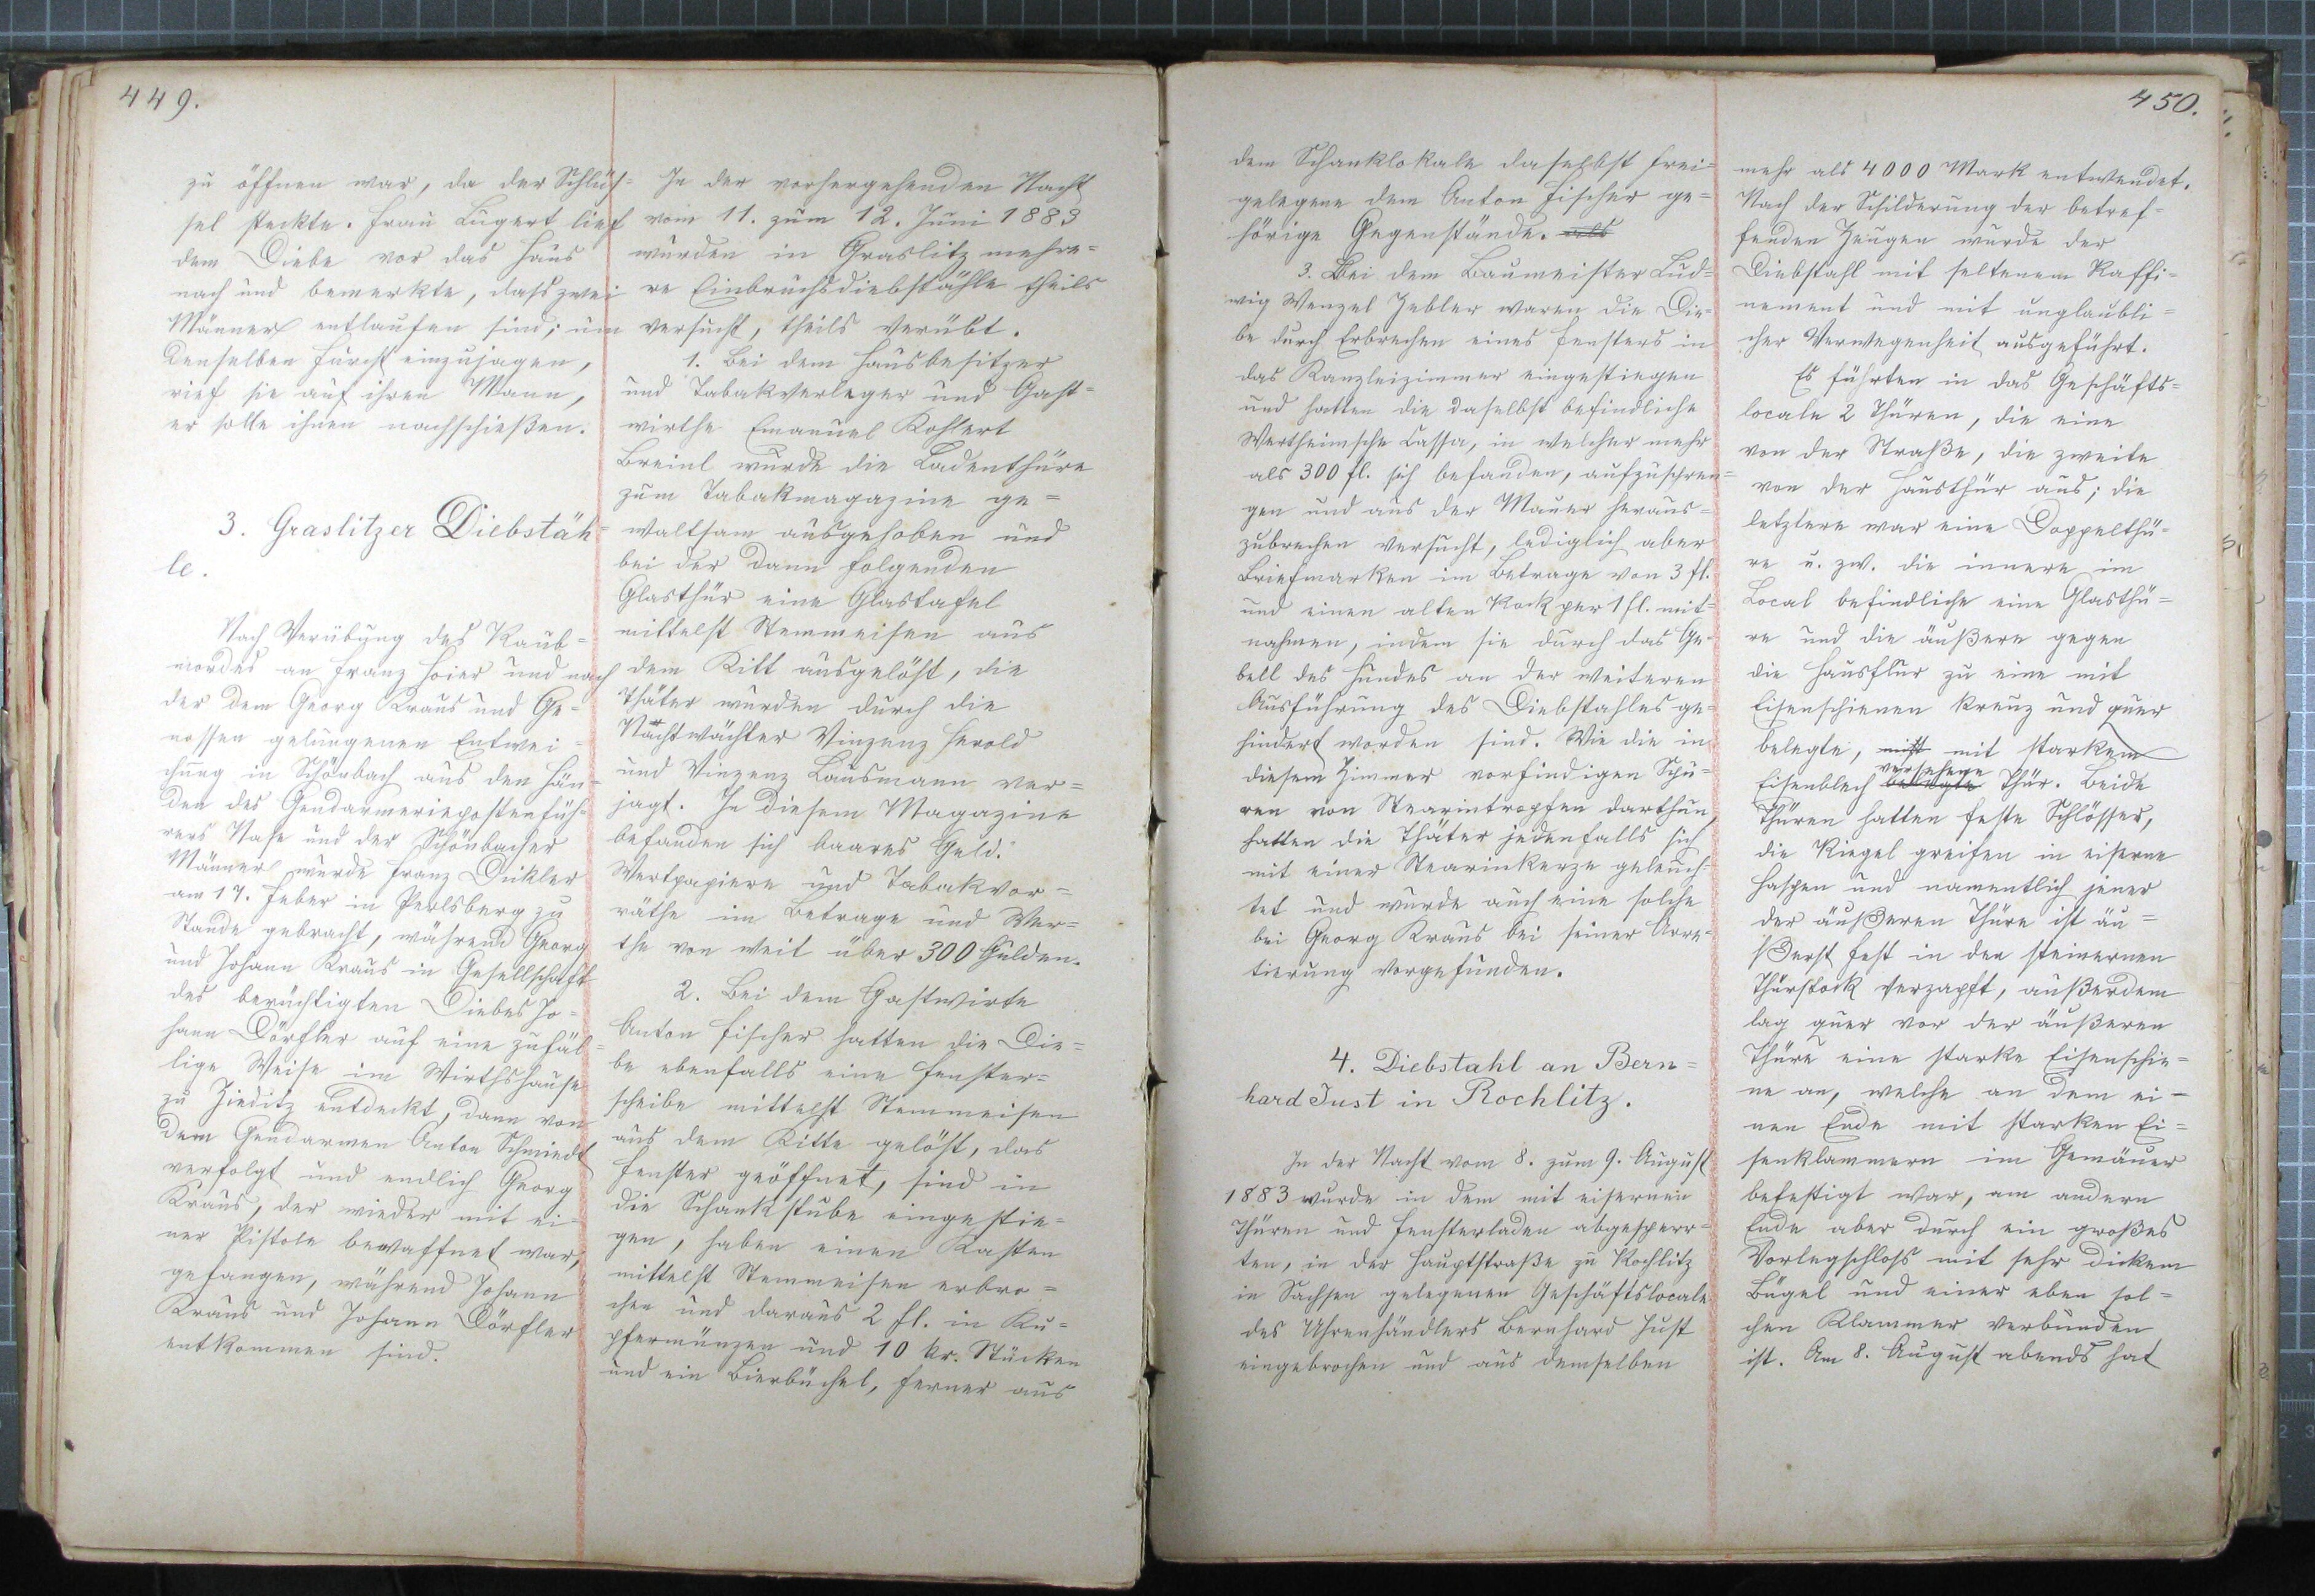 449.
zu öffnen war, da der Schlüs-
sel steckte. Frau Lugert lief
dem Diebe vor das Haus
nach und bemerkte, dass zwei
Männer entlaufen sind; um
denselben Furcht einzujagen,
rief sie auf ihren Mann,
er solle ihnen nachschießen.
3. Graslitzer Diebstäh=
le.
Nach Verübung des Raub=
mordes an Franz Hoier und nach
der dem Georg Kraus und Ge=
nossen gelungenen Entwei=
chung in Schönbach aus den Hän=
den des Gendarmeriepostenfüh=
rers Nase und der Schönbacher
Männer wurde Franz Dickler
am 17. Feber in Perlsberg zu
Stande gebracht, während Georg
und Johann Kraus in Gesellschaft
des berüchtigten Diebes Jo=
hann Dörfler auf eine zufäl=
lige Weise im Wirthshause
zu Zieditz entdeckt, dann von
dem Gendarmen Anton Schmiedt
verfolgt und endlich Georg
Kraus, der wieder mit ei=
ner Pistole bewaffnet war,
gefangen, während Johann
Kraus und Johann Dörfler
entkommen sind.
In der vorhergehenden Nacht
vom 11. zum 12. Juni 1883
wurden in Graslitz mehre=
re Einbruchsdiebstähle theils
versucht, theils verübt.
1. Bei dem Hausbesitzer
und Tabakverleger und Gast=
wirthe Emanuel Kohlert
Breinl wurde die Ladenthüre
zum Tabakmagazine ge=
waltsam ausgehoben und
bei der dann folgenden
Glasthür eine Glastafel
mittelst Stemmeisen aus
dem Kitt ausgelöst, die
Thäter wurden durch die
Nachtwächter Vinzenz Herold
und Vinzenz Lausmann ver=
jagt. In diesem Magazine
befanden sich baares Geld.
Wertpapiere und Tabakvor=
räthe im Betrage und Wer=
the von weit über 300 Gulden.
2. Bei dem Gastwirte
Anton Fischer hatten die Die=
be ebenfalls eine Fenster=
scheibe mittelst Stemmeisen
aus dem Kitte gelöst, das
Fenster geöffnet, sind in
die Schankstube eingestie=
gen, haben einen Kasten
mittelst Stemmeisen erbro=
chen und daraus 2 fl. in Ku=
pfermünzen und 10 kr. Stücken
und ein Bierbüchel, ferner aus
450.
dem Schanklokale daselbst frei=
gelegene dem Anton Fischer ge=
hörige Gegenstände. als
3. Bei dem Baumeister Lud=
wig Wenzel Zebler waren die Die=
be durch Erbrechen eines Fensters in
das Kanzleizimmer eingestiegen
und hatten die daselbst befindliche
Wertheimsche Cassa, in welcher mehr
als 300 fl. sich befanden, aufzuspren=
gen und aus der Mauer heraus=
zubrechen versucht, lediglich aber
Briefmarken im Betrage von 3 fl.
und einen alten Rock per 1 fl. mit=
nahmen, indem sie durch das Ge=
bell des Hundes an der weiteren
Ausführung des Diebstahles ge=
hindert worden sind. Wie die in
diesem Zimmer vorfindigen Spu=
ren von Stearintropfen darthun,
hatten die Thäter jedenfalls sich
mit einer Stearinkerze geleuch=
tet und wurde auch eine solche
bei Georg Kraus bei seiner Arre=
tierung vorgefunden.
4. Diebstahl an Bern=
hard Just in Rochlitz.
In der Nacht vom 8. zum 9. August
1883 wurde in dem mit eisernen
Thüren und Fensterladen abgesperr=
ten, in der Hauptstraße zu Rochlitz
in Sachsen gelegenen Geschäftslocale
des Uhrenhändlers Bernhard Just
eingebrochen und aus demselben
mehr als 4000 Mark entwendet.
Nach der Schilderung der betref=
fenden Zeugen wurde der
Diebstahl mit seltenem Raffi=
nement und mit unglaubli=
cher Verwegenheit ausgeführt.
Es führten in das Geschäfts=
locale 2 Thüren, die eine
von der Straße, die zweite
von der Hausthür aus; die
letztere war eine Doppelthü=
re u. zw. die innere im
Local befindliche eine Glasthü=
re und die äußere gegen
die Hausflur zu eine mit
Eisenschienen kreuz und quer
belegte, mit starkem
versehene
Eisenblech belegte Thür. Beide
Thüren hatten feste Schlösser,
die Riegel greifen in eiserne
Haspen und namentlich jener
der äußeren Thüre ist äu=
ßerst fest in den steinernen
Thürstock verzapft, außerdem
lag quer vor der äußeren
Thüre eine starke Eisenschie=
ne an, welche an dem ei=
nen Ende mit starken Ei=
senklammern im Gemäuer
befestigt war, am andern
Ende aber durch ein großes
Vorlegschloss mit sehr dickem
Bügel und einer eben sol=
chen Klammer verbunden
ist. Am 8. August abends hat